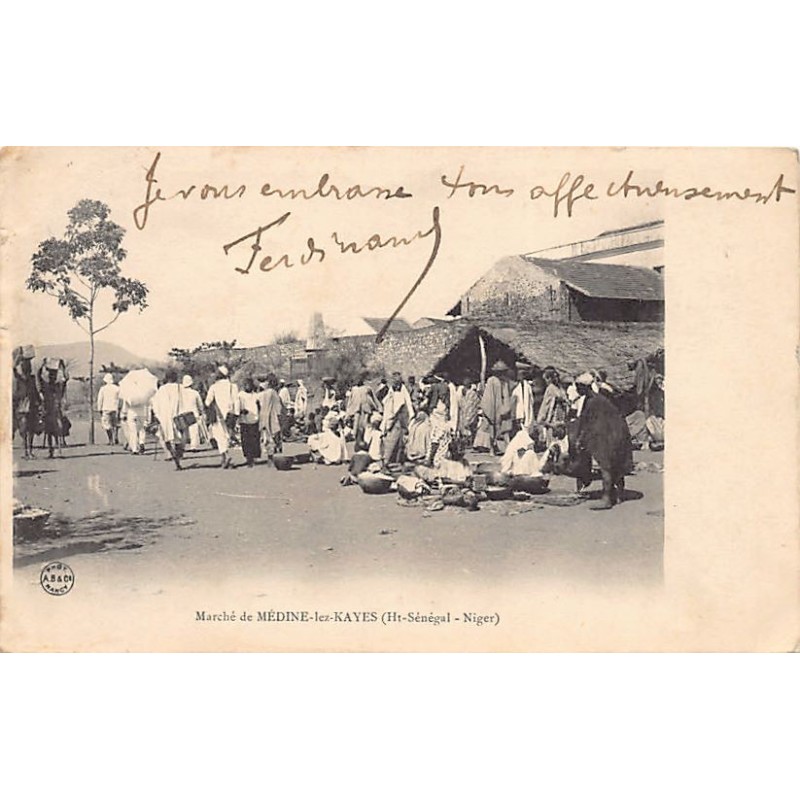 Je vous embrasse tous affectueusement
Ferdinand
PHOT
A.B & Cie
NANCY
Marché de MÉDINE-lez-KAYES (Ht-Sénégal - Niger)